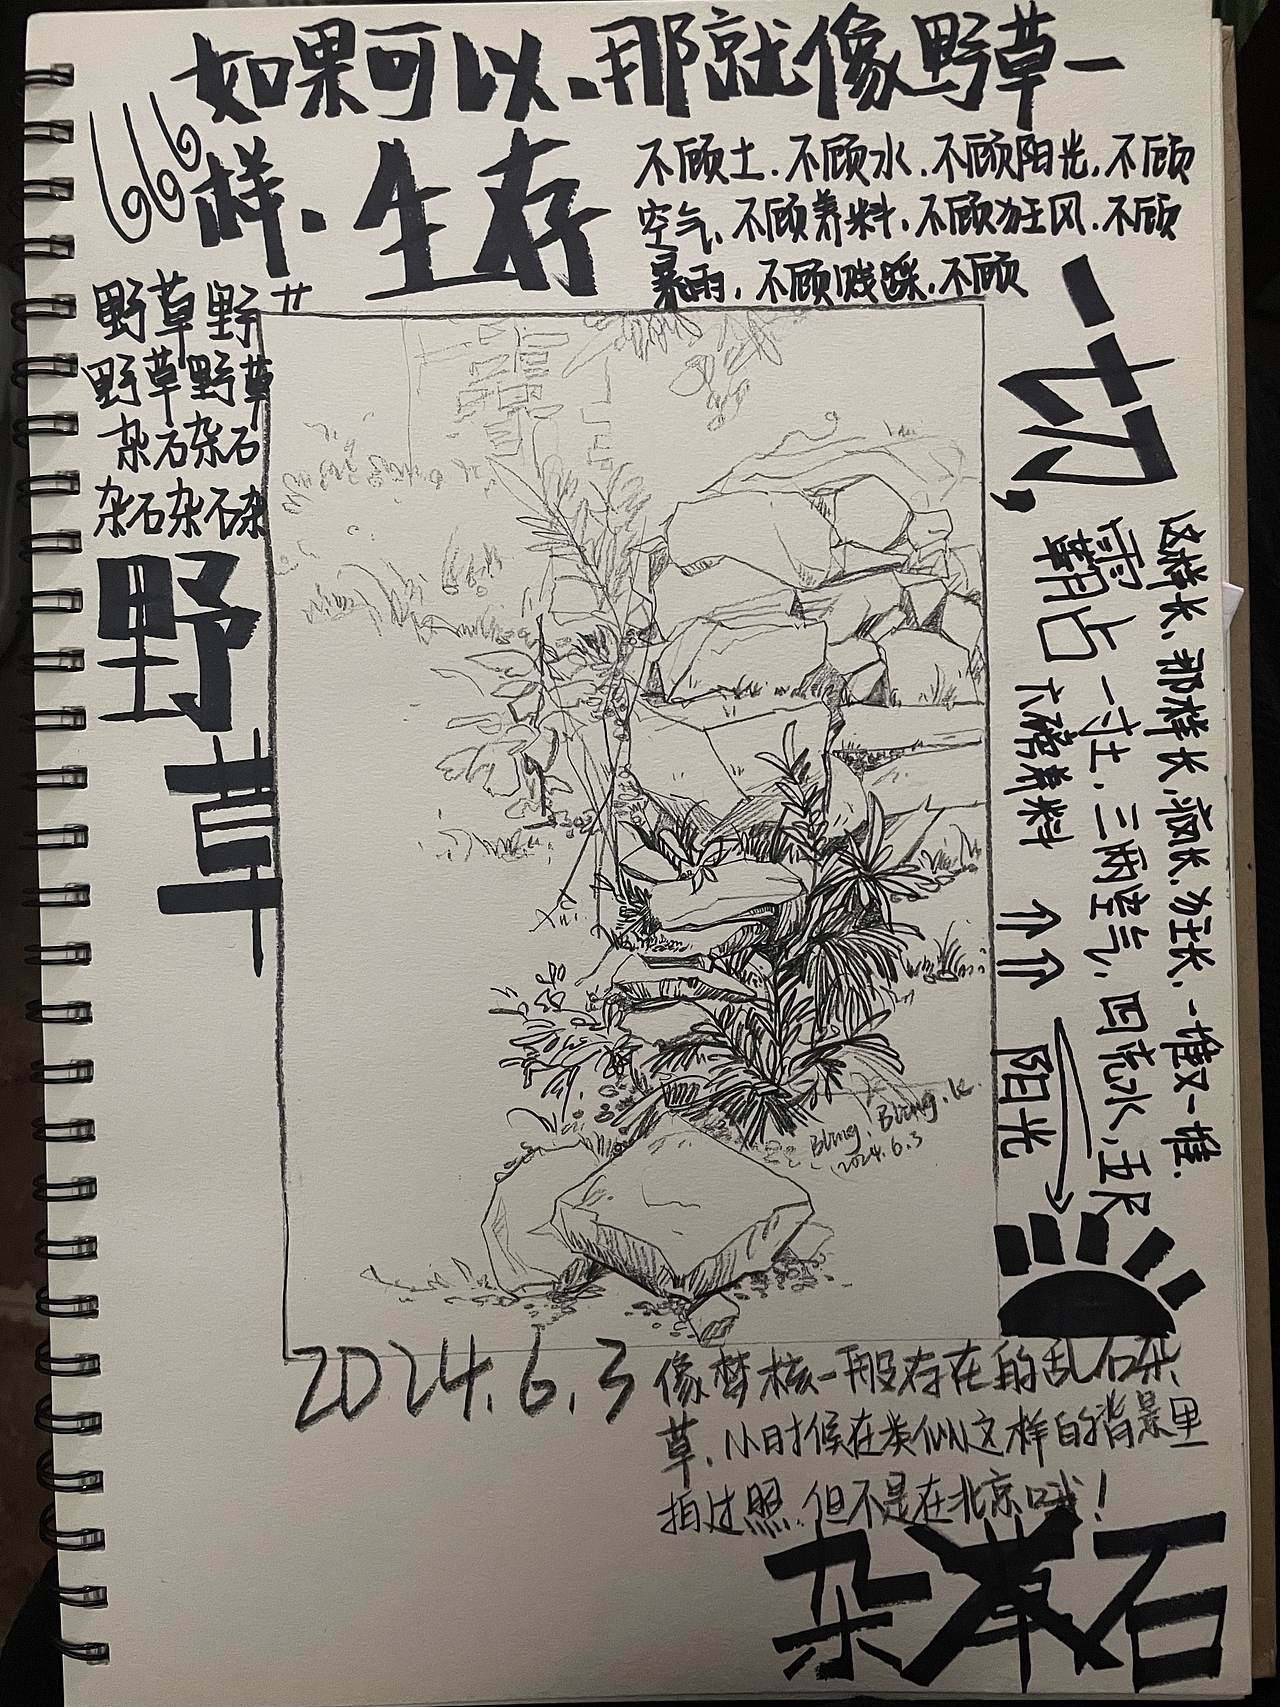 如果可以、那就像野草一
样.生存
不顾土.不顾水.不顾阳光,不顾
空气,不顾养料,不顾狂风.不顾
暴雨,不顾贱踩,不顾
一切,
野草野艹
野草野草
杂石杂石
杂石杂石杂
野
草
这样长,那样长,疯长,狂长,一堆又一堆.
霸占一寸土,三两空气,四壳水,五尺
阳光
六磅养料
个个
Bling.Bling.k
2024.6.3
2024.6.3
像梦核一般存在的乱石杂
草,小时候在类似这样的背景里
拍过照.但不是在北京哦!
杂草石